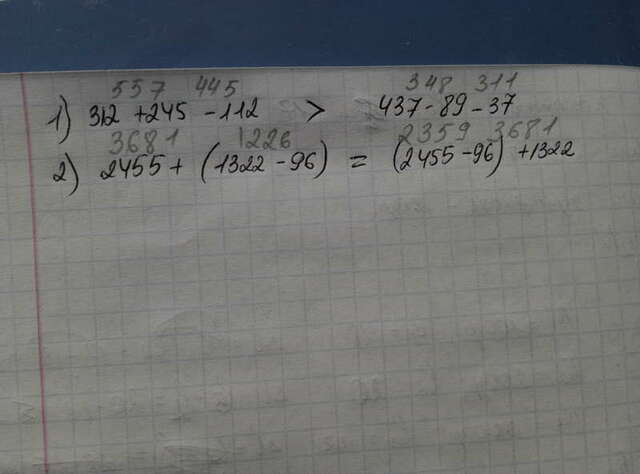 557 445 348 311
1) 312 + 245 - 112 > 437 - 89 - 37
3681 1226 2359 3681
2) 2455 + (1322 - 96) = (2455 - 96) + 1322